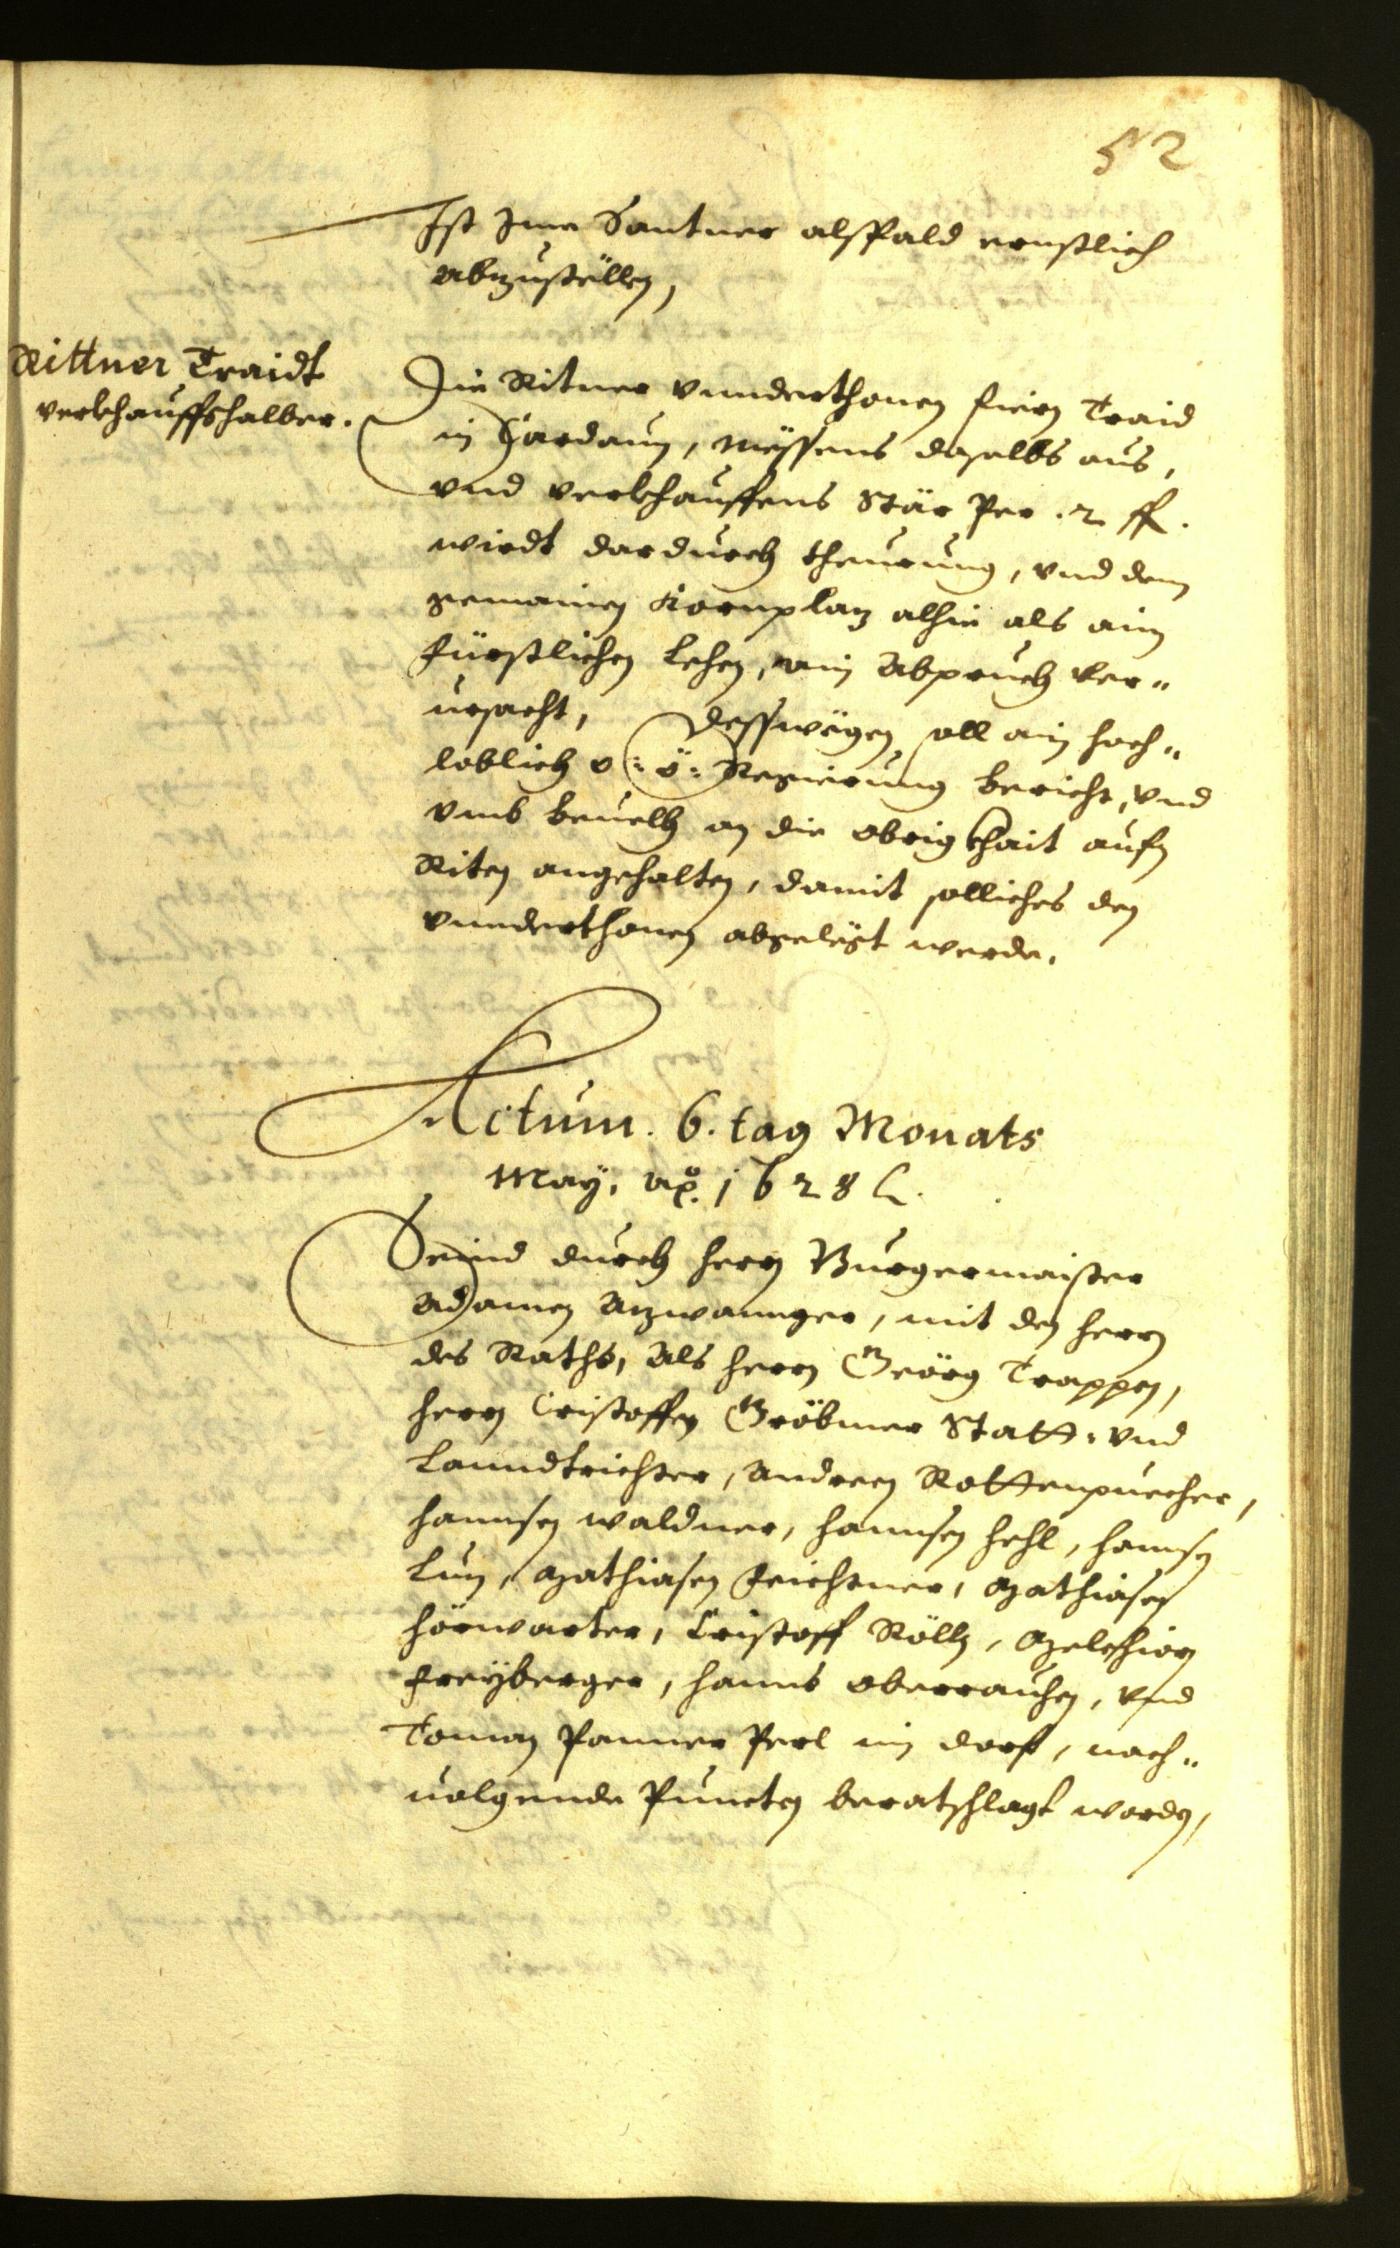 52
Ist Ime Santner alspald ernstlich
abzustöllen,
Rittner Traidt
verkhauffshalber.
Die Ritner vnnderthonen fiern Traid
in Cardaun, mössens daselbs aus,
vnd verkhauffens Stär Per . 2 fl.
wirdt dardurch theurung, vnd dem
gemainen Kornplaz alhie als ain
fürstlichen Lehen, ain Abpruch ver„
ursacht, desswegen soll ain hoch„
loblich o: ö: Regierung bericht, vnd
vmb beuelh an die obrigkhait aufm
Riten angehalten, damit solliches den
vnnderthonen abgelegt werde.
Actum. 6. tag Monats
May, ao. 1628 L.
Seind durch herrn Burgermaister
Adamen Azwannger, mit den herrn
des Raths, Als herrn Geörg Trappen,
herrn Cristoffen Gröbmer Statt- vnd
Lanndtrichter, Andreen Rottenpuecher,
hannsen waldner, hannsen hehl, hannsen
Lun, Mathiasen Feichtner, Mathiasen
hörwarter, Cristoff Röllz, Melchior
Freyberger, hanns oberrauhen, vnd
Toman Panner Perl im dorf, nach„
uolgende Puncten beratschlagt worden,